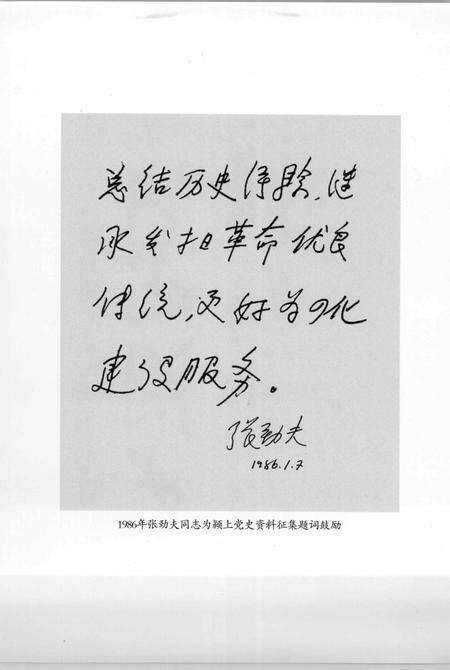 总结历史经验,继
承发扬革命优良
传统,更好为四化
建设服务。
张劲夫
1986.1.7
1986年张劲夫同志为颍上党史资料征集题词鼓励